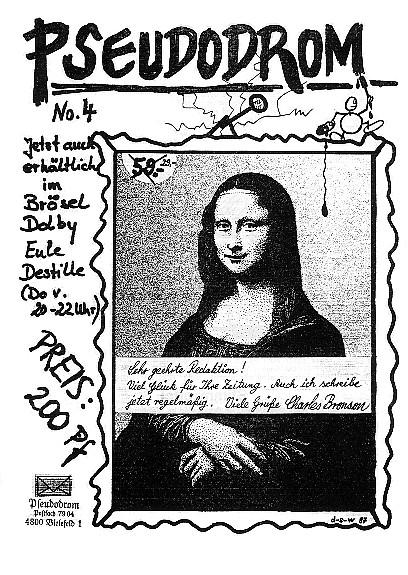 PSEUDODROM
No. 4
Jetzt auch
erhältlich
im
Brösel
Dolby
Eule
Destille
(Do v.
20-22 Uhr)
PREIS:
200 Pf
59,-
Sehr geehrte Redaktion!
Viel Glück für Ihre Zeitung. Auch ich schreibe
jetzt regelmäßig. Viele Grüße Charles Bronson
Pseudodrom
Postfach 7904
4800 Bielefeld 1
d-s-w 87